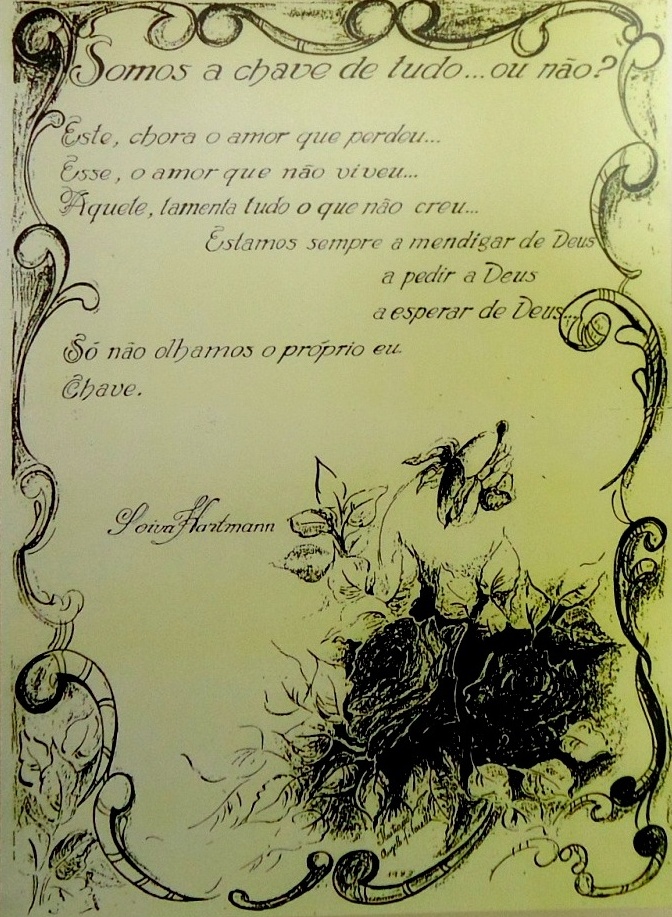 Somos a chave de tudo...ou não?
Este, chora o amor que perdeu...
Esse, o amor que não viveu...
Aquele, lamenta tudo o que não creu...
Estamos sempre a mendigar de Deus
a pedir a Deus
a esperar de Deus...
Só não olhamos o próprio eu.
Chave.
Loiva Hartmann
1983